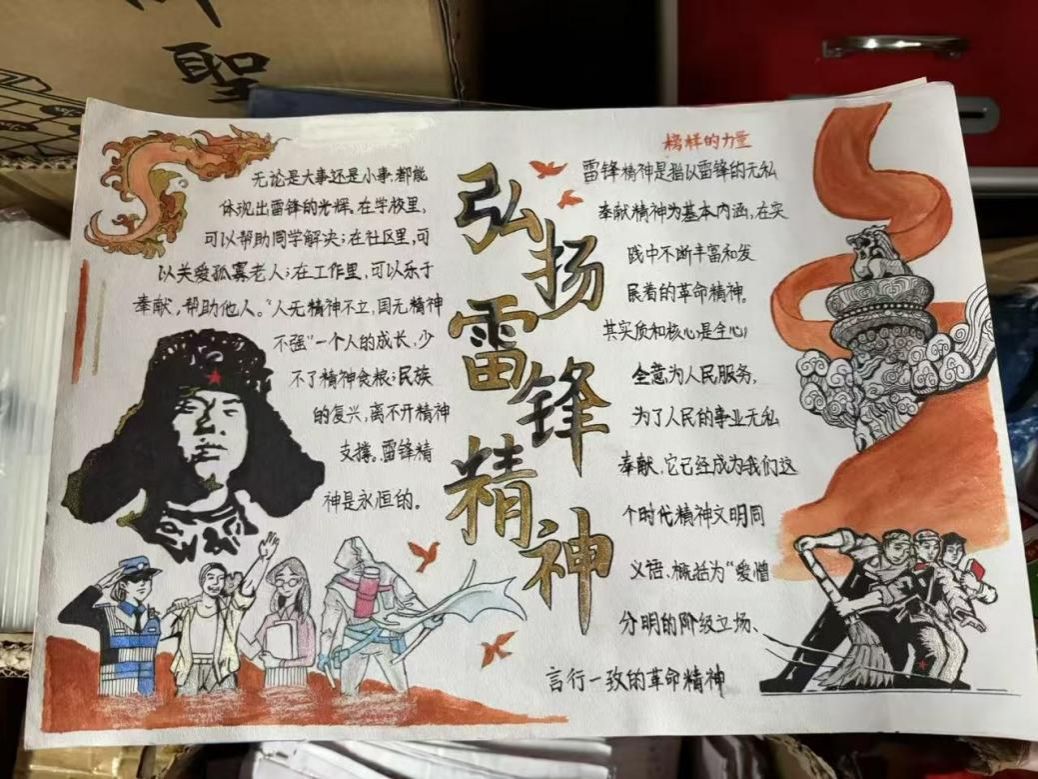 聖
无论是大事还是小事,都能
体现出雷锋的光辉。在学校里,
可以帮助同学解决;在社区里,可
以关爱孤寡老人;在工作里,可以乐于
奉献,帮助他人。“人无精神不立,国无精神
不强”一个人的成长,少
不了精神食粮;民族
的复兴,离不开精神
支撑。雷锋精
神是永恒的。
弘扬
雷锋
精神
榜样的力量
雷锋精神是指以雷锋的无私
奉献精神为基本内涵,在实
践中不断丰富和发
展着的革命精神。
其实质和核心是全心
全意为人民服务,
为了人民的事业无私
奉献,它已经成为我们这
个时代精神文明同
义语、概括为“爱憎
分明的阶级立场、
言行一致的革命精神